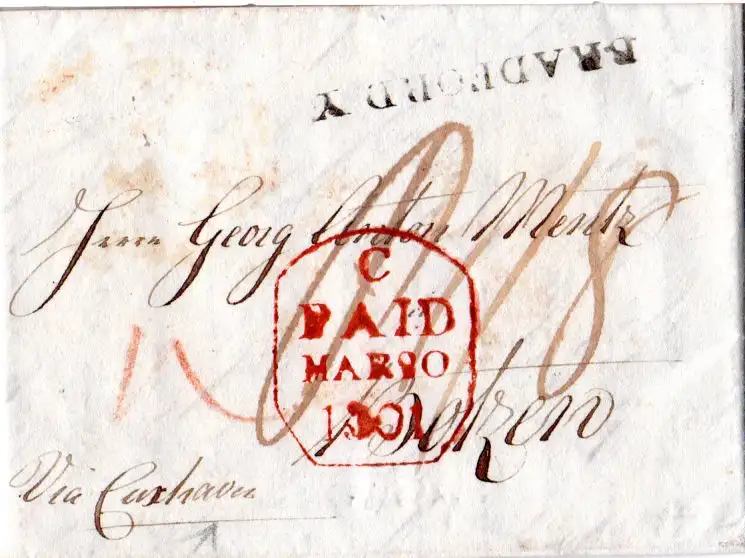 BRADFORD Y
Herrn Georg Anton Mentz
C
PAID
MAR 20
1801
Botzen
Via Cuxhaven